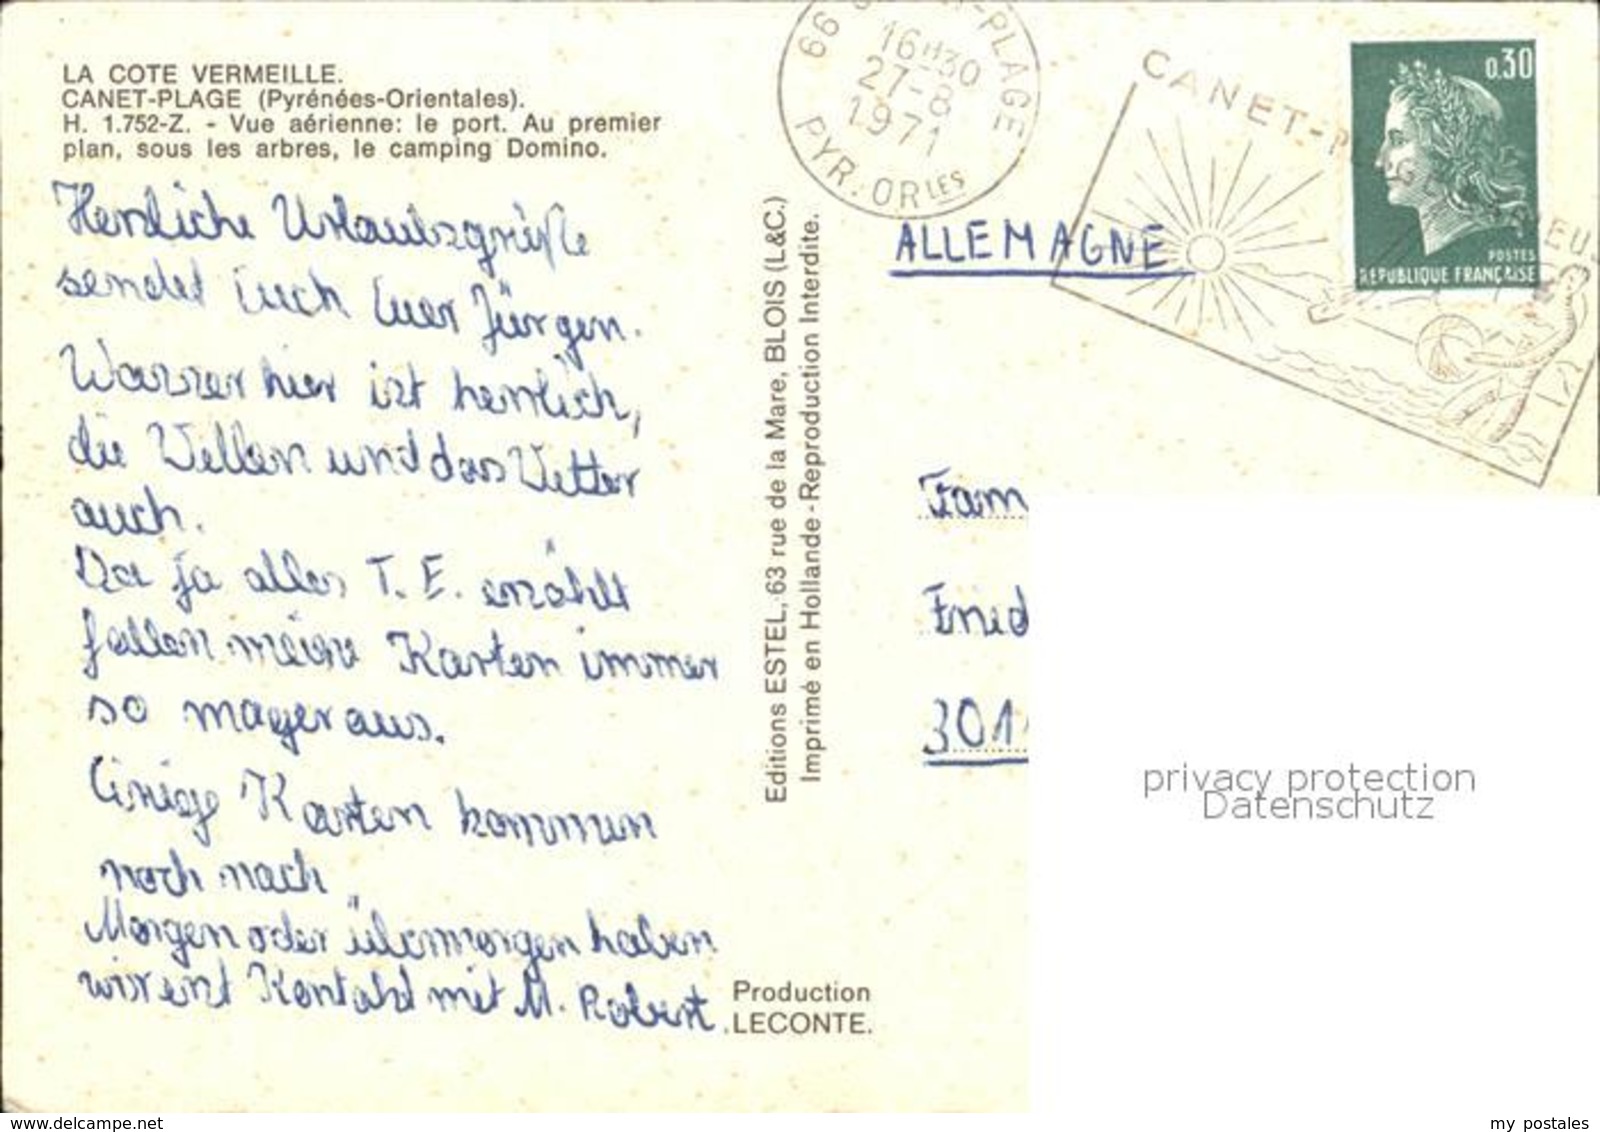 LA COTE VERMEILLE.
CANET-PLAGE (Pyrénées-Orientales).
H. 1.752-Z. - Vue aérienne: le port. Au premier
plan, sous les arbres, le camping Domino.
Herzliche Urlaubsgrüße
sendet Euch Euer Jürgen.
Wasser hier ist herrlich,
die Wellen und das Wetter
auch.
Da ja alles T. E. erzählt
fallen meine Karten immer
so mager aus.
Einige Karten kommen
noch nach.
Morgen oder übermorgen haben
wir erst Kontakt mit M. Robert.
Production
LECONTE.
Editions ESTEL, 63 rue de la Mare, BLOIS (L&C.)
Imprimé en Hollande - Reproduction Interdite.
66 -PLAGE
16H30
27-8
1971
PYR. ORLES
CANET-P
0.30
POSTES
REPUBLIQUE FRANÇAISE
ALLEMAGNE
Fam
Fried
301
privacy protection
Datenschutz
www.delcampe.net
my_postales